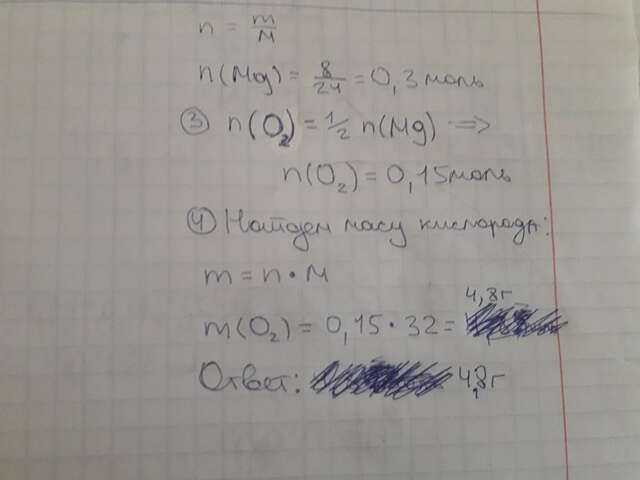 n = m/M
n(Mg) = 8/24 = 0,3 моль
③ n(O₂) = 1/2 n(Mg) ⇒
n(O₂) = 0,15 моль
④ Найдем масу кислорода:
m = n • M
4,8 г
m(O₂) = 0,15 • 32 =
Ответ: 4,8 г